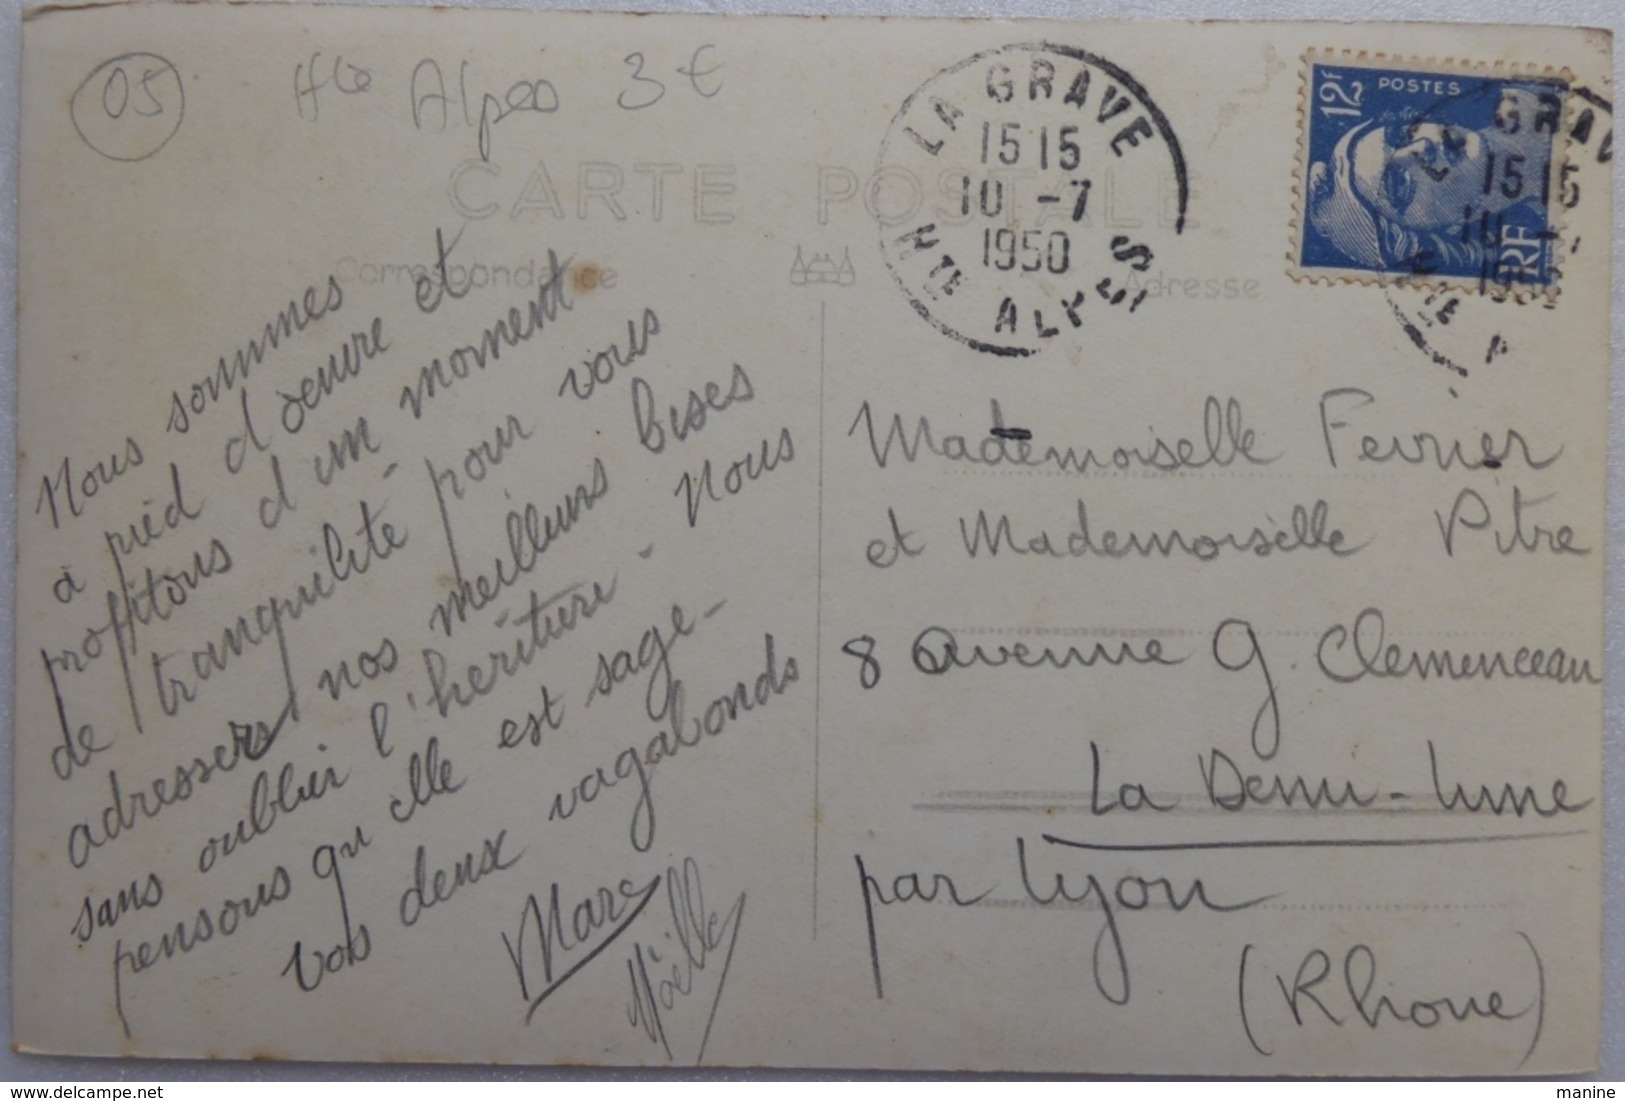 05
Hte Alpes 3€
CARTE POSTALE
Correspondance
Adresse
LA GRAVE
15 15
10 -7
1950
HTE ALPES
12F
POSTES
RF
LA GRAV
15 15
10 -7
195
HTE A
Nous sommes
à pied d'oeuvre et
profitons d'un moment
de tranquilité pour vous
adresser nos meilleurs bises
sans oublier l'heriture. Nous
pensons qu'elle est sage -
vos deux vagabonds
Marc
Noëlle
Mademoiselle Fevrier
et Mademoiselle Pitre
8 avenue G. Clemenceau
La Demi-lune
par Lyon
(Rhone)
manine